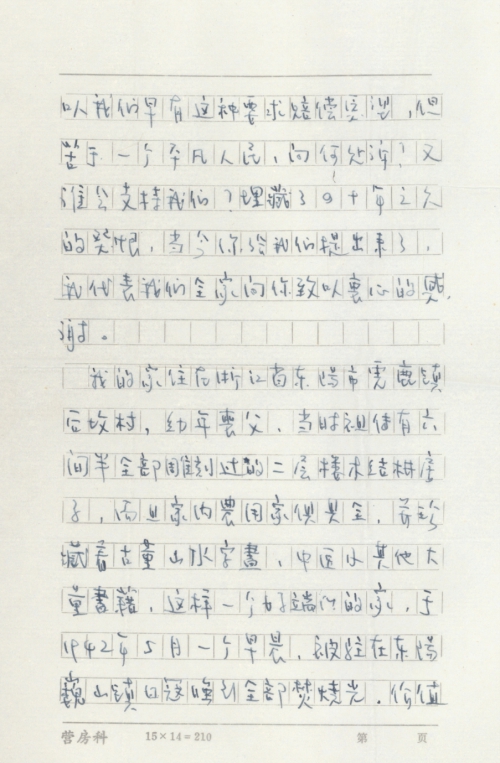 以我们早有这种要求赔偿愿望,但
苦于一个平凡人民,向何处诉?又
谁会支持我们?埋藏了四十年之久
的怨恨,当今你给我们提出来了,
我代表我们全家向你致以衷心的感
谢。
我的家住在浙江省东陽市虎鹿镇
后坟村,幼年丧父,当时祖传有六
间半全部雕刻过的二层楼木结构房
子,而且家内農用家俱具全,并珍
藏着古董山水字畫,中医及其他大
量書籍,这样一个好端端的家,于
1942年5月一个早晨,被驻在东陽
巍山镇日冠 全部焚烧光.价值
营房科 15×14=210 第 页